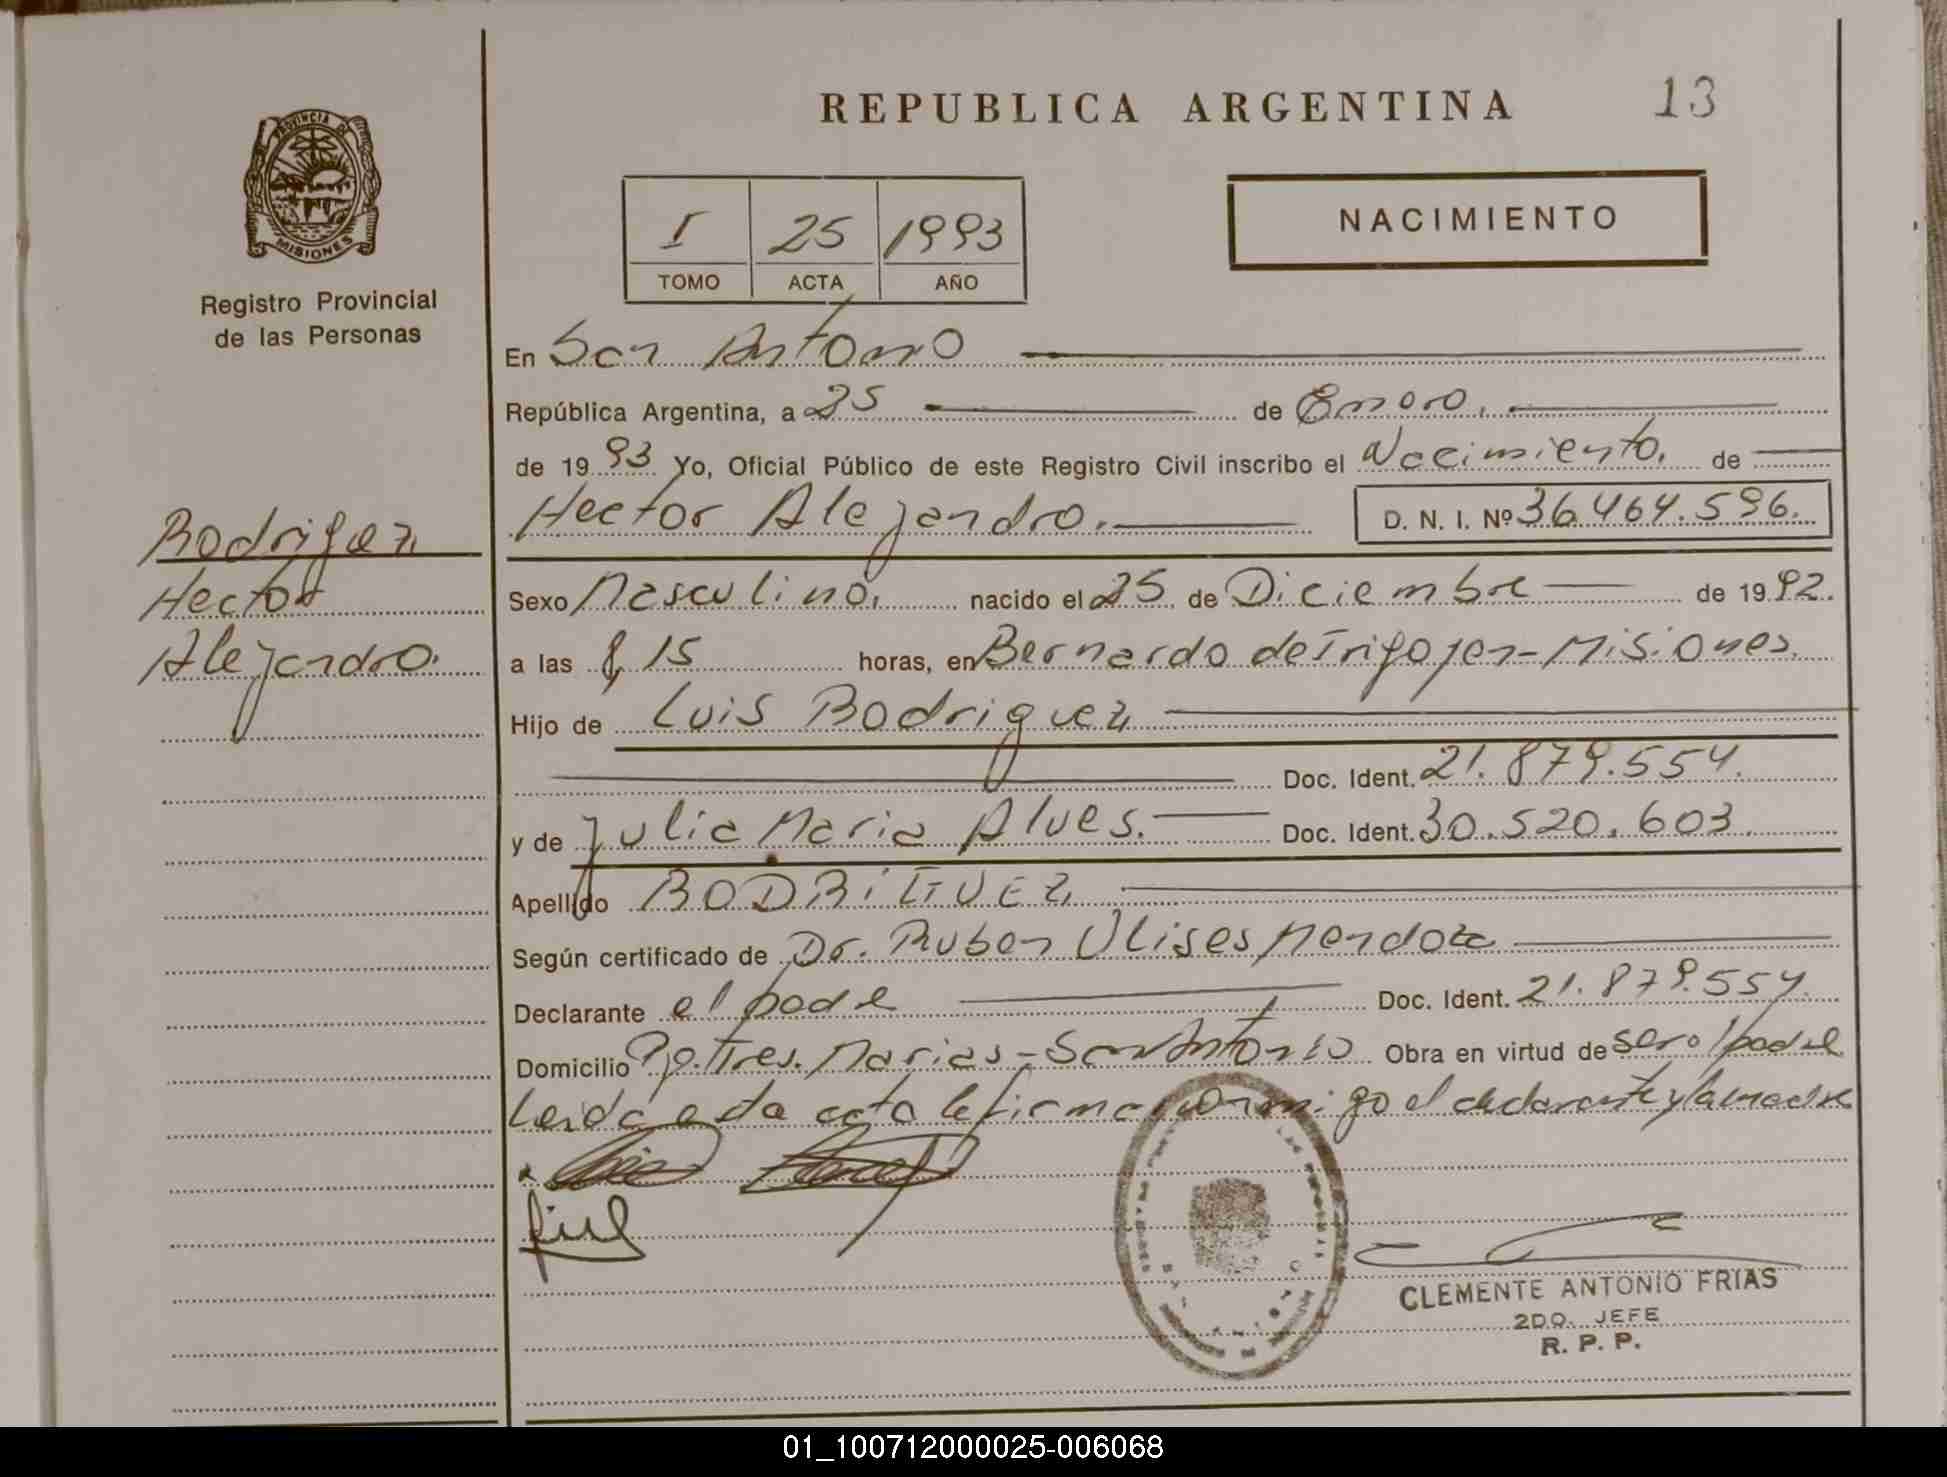 REPUBLICA ARGENTINA 13
PROVINCIA DE
MISIONES
Registro Provincial
de las Personas
I 25 1993
TOMO ACTA AÑO
NACIMIENTO
En San Antonio
República Argentina, a 25 de Enero.
de 1993 Yo, Oficial Público de este Registro Civil inscribo el Nacimiento. de
Hector Alejandro. D. N. I. Nº 36.464.596.
Rodriguez
Hector
Alejandro.
Sexo Masculino, nacido el 25 de Diciembre de 1992.
a las 8,15 horas, en Bernardo de Irigoyen - Misiones.
Hijo de Luis Rodriguez
Doc. Ident. 21.879.554.
y de Julia Maria Alves. Doc. Ident. 30.520.603.
Apellido RODRIGUEZ
Según certificado de Dr. Ruben Ulises Mendoza
Declarante el padre Doc. Ident. 21.879.554.
Domicilio Pje. Tres Marias - San Antonio Obra en virtud de ser el padre
Leida esta acta la firma conmigo el declarante y la madre
CLEMENTE ANTONIO FRIAS
2DO. JEFE
R. P. P.
01_100712000025-006068